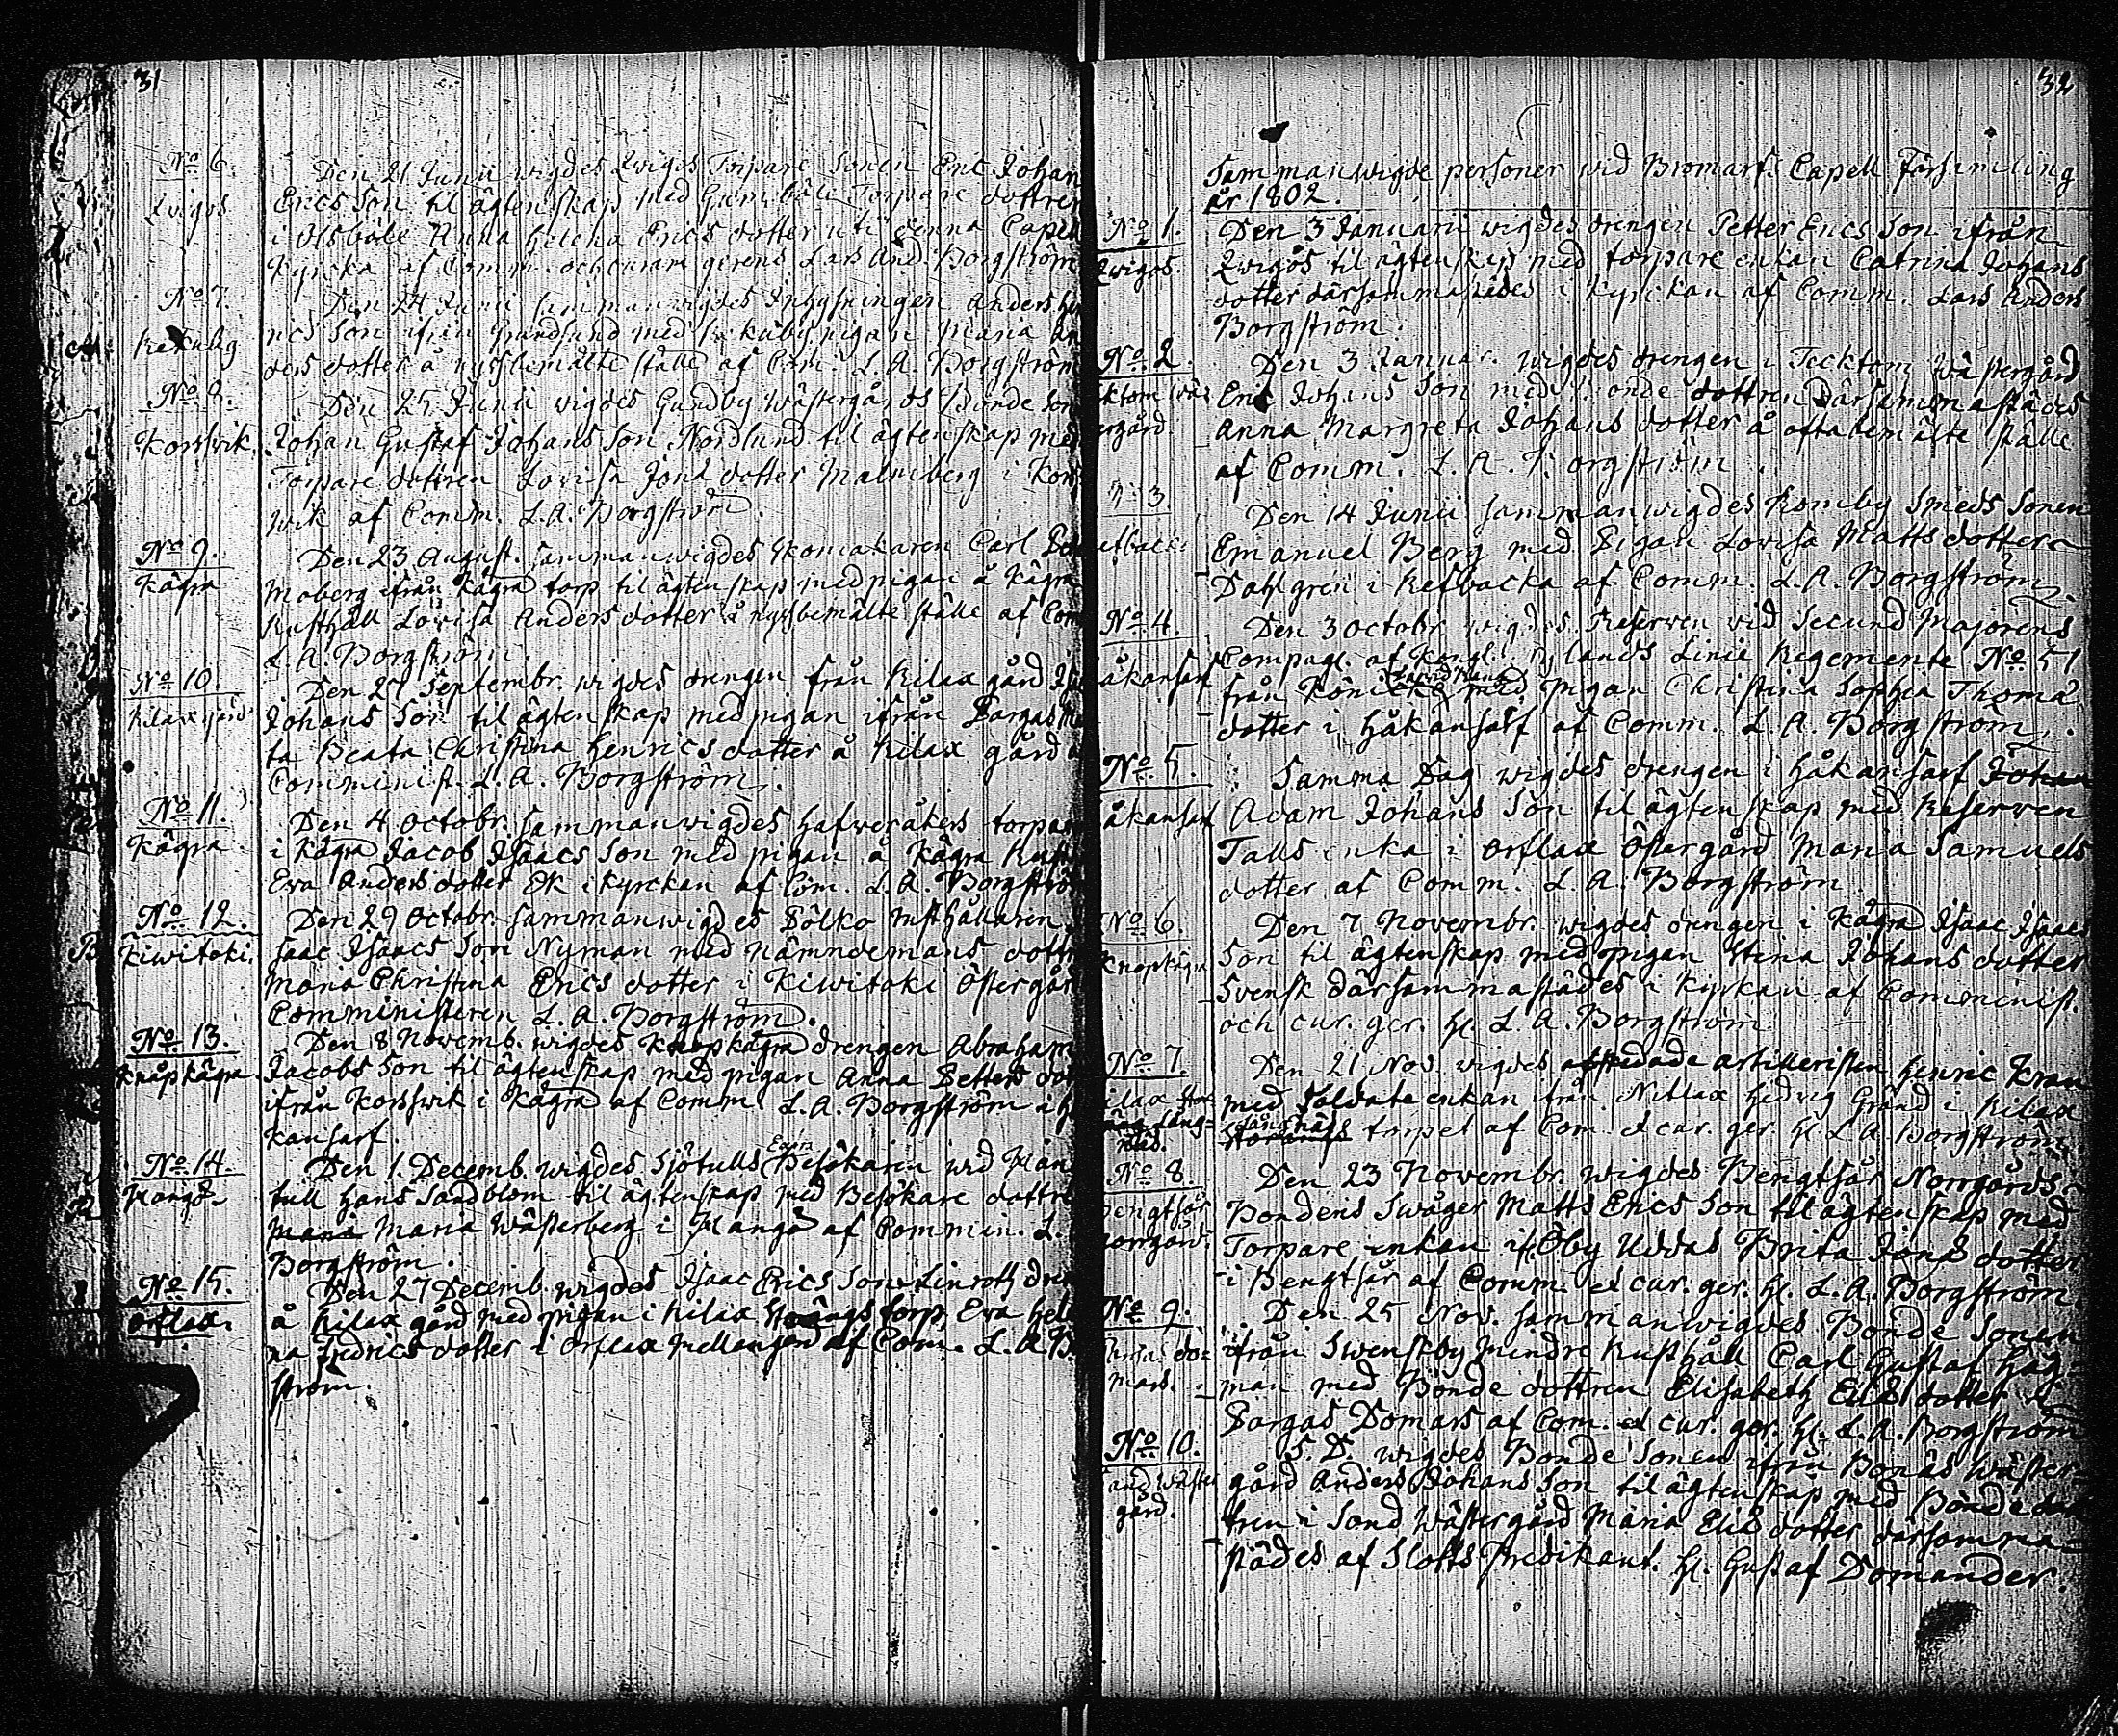 31
No 6.
Qvigos
Den 21 Junii wigdes Qvigos Torpare sonen Eric Johan
Erics Son til ägtenskap med Gumböle Torpare dottren
i Olsböle Anna Helena Erics dotter uti denna Capell
Kyrcka af Comm. och curam gerens Lars And. Borgström
No 7.
Rekuby
Den 24 Junii sammanwigdes Inhysningen Anders Hen
rics Son ifrån med Rekuby pigan Maria An
ders dotter å nyssbemälte ställe af Com. L. A. Borgström
No 8.
Korsvik.
Den 25 Junii wigdes Gundby Wästergårds Bonde Son
Johan Gustaf Johans Son Nordlund til ägtenskap med
Torpare dottren Lovisa Jona dotter Malmberg i Kors
wik af Comm. L. A. Borgström.
No 9.
Kâgra
Den 23 August. sammanwigdes Skomakaren Carl
Moberg ifrån Kâgra torp til ägtenskap med pigan å Kâgra
Rusthåll Lovisa Anders dotter å nyssbemälte ställe af Com
L. A. Borgström.
No 10
Kilax gård
Den 27 Septembr. wigdes drengen från Kilax gård
Johans Son til ägtenskap med pigan ifrån Pargas
ta Beata Christina Henrics dotter å Kilax gård
Comminist. L. A. Borgström.
No 11.
Kâgra.
Den 4 Octobr. sammanwigdes Hafweråkers torpar
i Kâgra Jacob Isaacs Son med pigan å Kâgra Rust
Eva Anders dotter Ek i Kyrckan af Com. L. A. Borgström
No 12.
Kiwitoki.
Den 29 Octobr. sammanwigdes Pölkö rusthållaren
saac Isaacs Son Nyman med nämndemans dottr
Maria Christina Erics dotter i Kiwitoki Östergård
Comministeren L. A. Borgström.
No 13.
Knapkâgra.
Den 8 Novemb. wigdes Knopkâgra drengen Abraham
Jacobs Son til ägtenskap med pigan Anna Petters dot
ifrån Korsvik i Kâgra af Comm. L. A. Borgström i Hå
kansarf.
No 14.
Hangö.
Den 1. Decemb. wigdes Sjötulls Besökaren wid Han
tull Hans Sandblom til ägtenskap med Besökare dottre
Maria Maria Wästerberg i Hangö af Commin. L.
Borgström.
No 15.
Orflax.
Den 27 Decemb. wigdes Isaac Erics Son Linroth dren
å Kilax gård med pigan i Kilax torp, Eva Hele
na Fredrics dotter i Orflax Mellangård af Com. L. A. B.
ström.
32
Sammanwigde personer wid Bromarf. Capell Församling
år 1802.
No 1.
Qwigos.
Den 3 Januarii wigdes drengen Petter Erics Son ifrån
Qwigös til ägtenskap med torpare enkan Catrina Johans
dotter därsammastädes i Kyrckan af Comm. Lars Anders
Borgström.
No 2.
ktom Wäs
ergård
Den 3 Januar. wigdes drengen i Tecktom Wästergård
Eric Johans Son med Bonde dottren därsammastädes
Anna Margreta Johans dotter å oftabemälte ställe
af Comm. L. A. Borgström.
No 3.
efbacka
Den 14 Junii sammanwigdes Romby Smeds Sonen
Emanuel Berg med Pigan Lovisa Matts dotter
Dahlgren i Refbacka af Comm. L. A. Borgström
No 4.
åkansarf
Den 3 Octobr. wigdes Reserven wid Secund Majorens
Compagl. af Kongl. Nylands Linie Regemente No 51
från Könicke med pigan Christina Sophia Thoma
dotter i Håkansarf af Comm. L. A. Borgström.
No 5.
åkansarf
Samma Dag wigdes drengen i Håkansarf Johan
Adam Johans Son til ägtenskap med Reserven
Talls enka i Orflax Östergård Maria Samuels
dotter af Comm. L. A. Borgström
No 6.
Knopkâgra
Den 7 Novembr. wigdes drengen i Kâgra Isaac Isaacs
Son til ägtenskap med pigan Stina Johans dotter
Svensk därsammastädes i Kyrkan af Comminist.
och cur. ger. H. L. A. Borgström
No 7.
ilax
Läng=
näs.
Den 21 Nov. wigdes afskedade artilleristen Henric Kran
med Soldate enkan ifrån Nitlax Hedvig Grönd i Kilax
Långnäs torpet af Com. et cur. ger. H. L. A. Borgström.
No 8.
engtsår
orrgård.
Den 23 Novembr. wigdes Bengtsår Norrgårds
Bondens Swåger Matts Erics Son til ägtenskap med
Torpare enkan if. Öby Uddas Brita Jonas dotter
i Bengtsår af Comm. et cur. ger. H. L. A. Borgström.
No 9.
Do=
mars.
Den 25 Nov. sammanwigdes Bonde Sonen
ifrån Swensby Mindre Rusthåll Carl Gustaf Hag=
man med Bonde dottren Elisabeth Elis dotter i
Pargas Domars af Com. et cur. ger. H. L. A. Borgström
No 10.
and Wäster
gård.
S. D. wigdes Bonde Sonen ifrån Bonäs Wäster=
gård Anders Johans Son til ägtenskap med Bonde dot
tren i Sand Wästergård Maria Elis dotter därsamma=
städes af Slotts Predikant. H. Gustaf Domander.